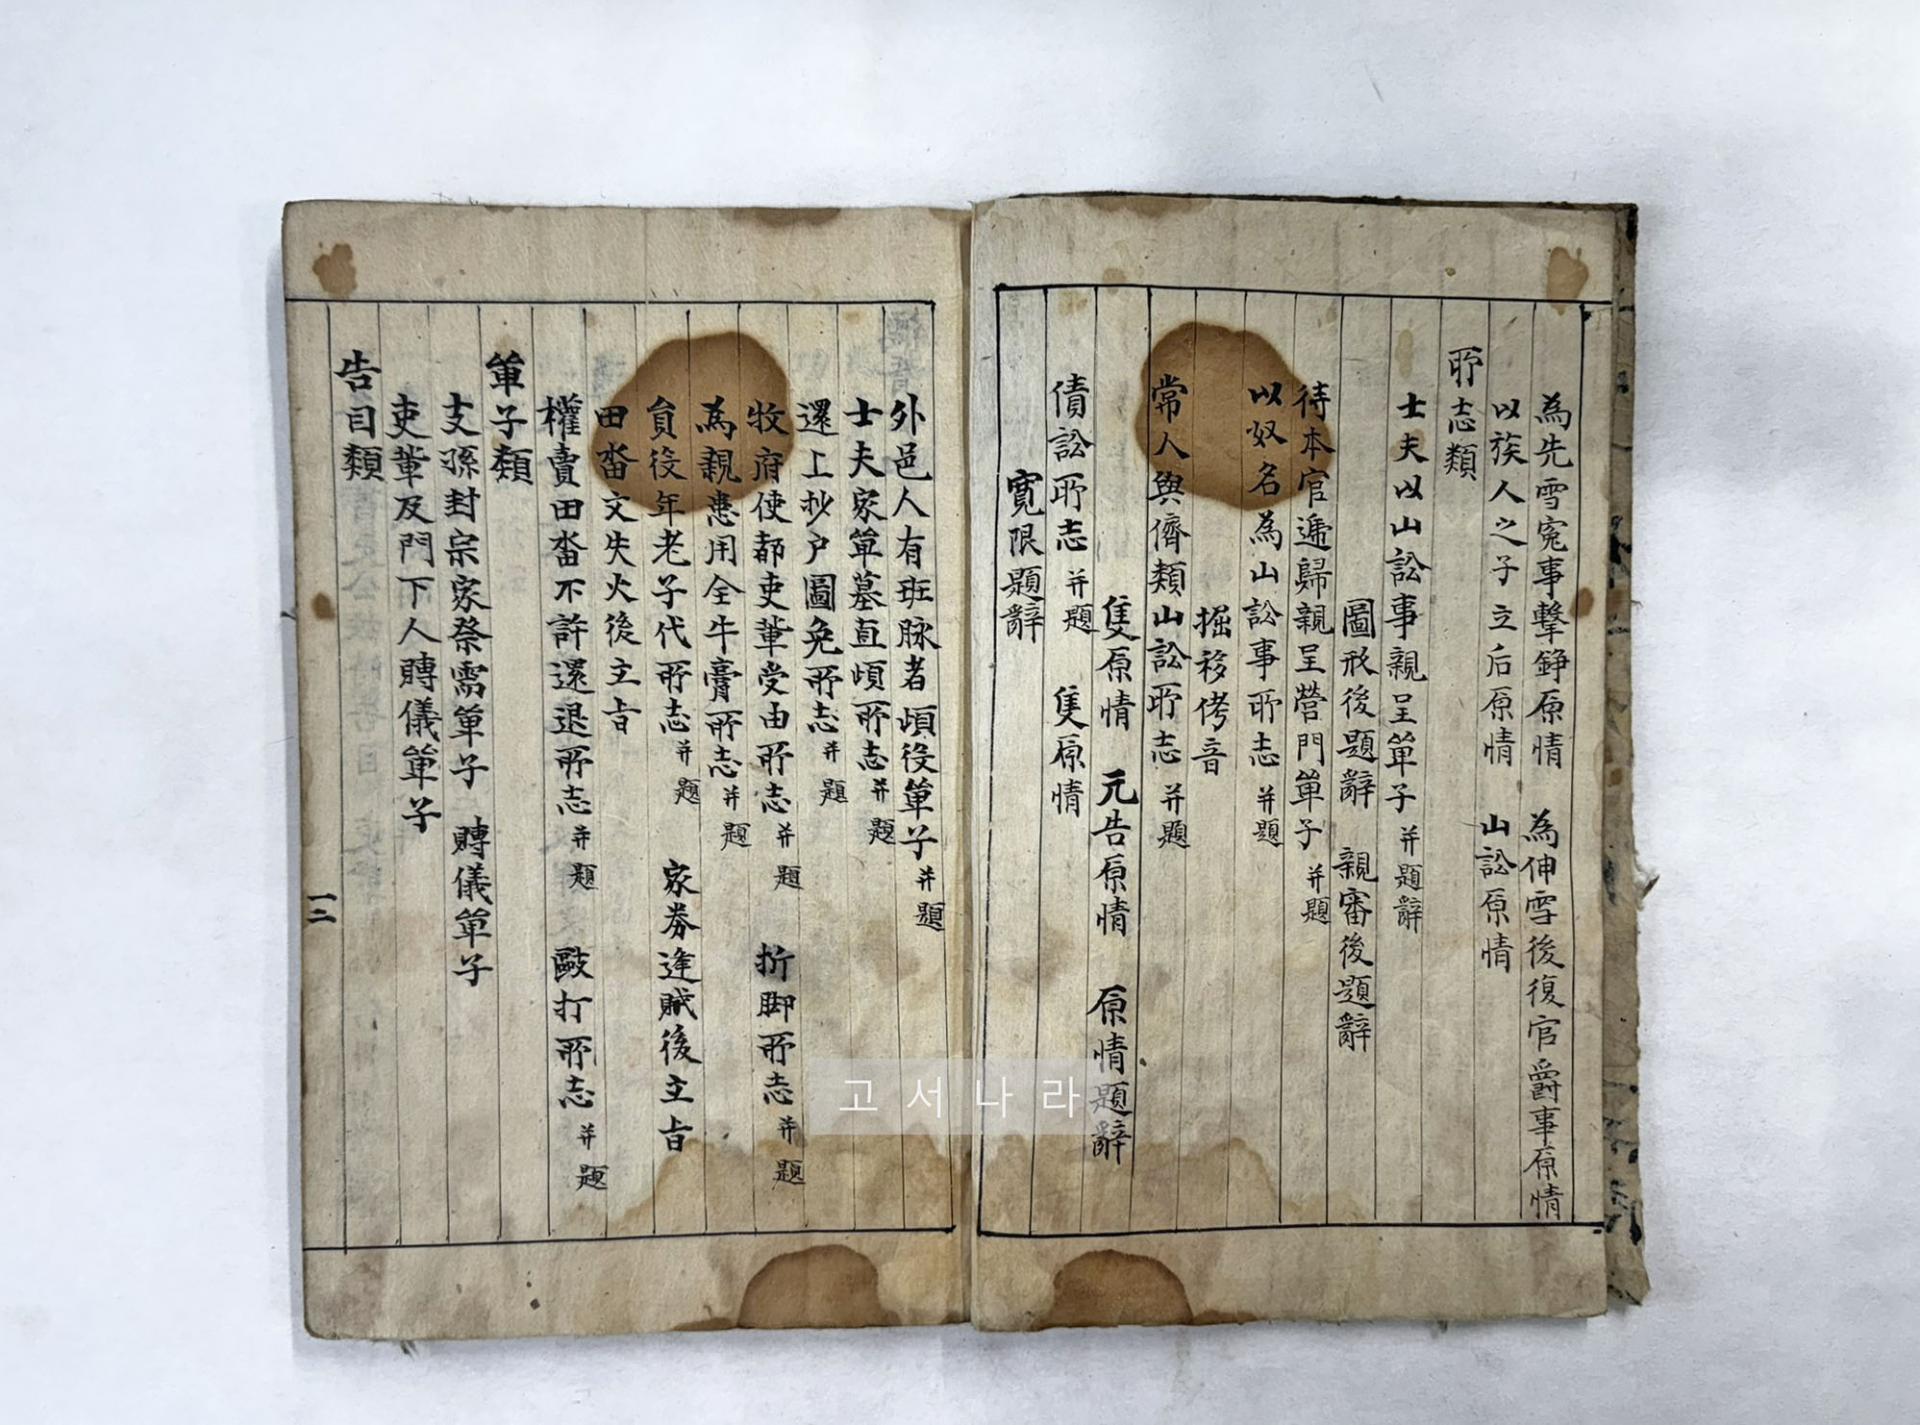 為先雪寃事擊錚原情 為伸雪後復官爵事原情
以族人之子立后原情 山訟原情
所志類
士夫以山訟事親呈單子 并題辭
圖形後題辭 親審後題辭
待本官遞歸親呈營門單子 并題
以奴名為山訟事所志 并題
掘移侤音
常人與儕類山訟所志 并題
隻原情 元告原情 原情題辭
債訟所志 并題 隻原情
寬限題辭
外邑人有班脉者頉役單子 并題
士夫家單墓直頉所志 并題
還上抄户圖免所志 并題
牧府使都吏輩受由所志 并題 折脚所志 并題
為親患用全牛膏所志 并題
負役年老子代所志 并題 家券逢賊後立旨
田畓文失火後立旨
權賣田畓不許還退所志 并題 毆打所志 并題
單子類
支孫封宗家祭需單子 賻儀單子
吏輩及門下人賻儀單子
告目類
고서나라